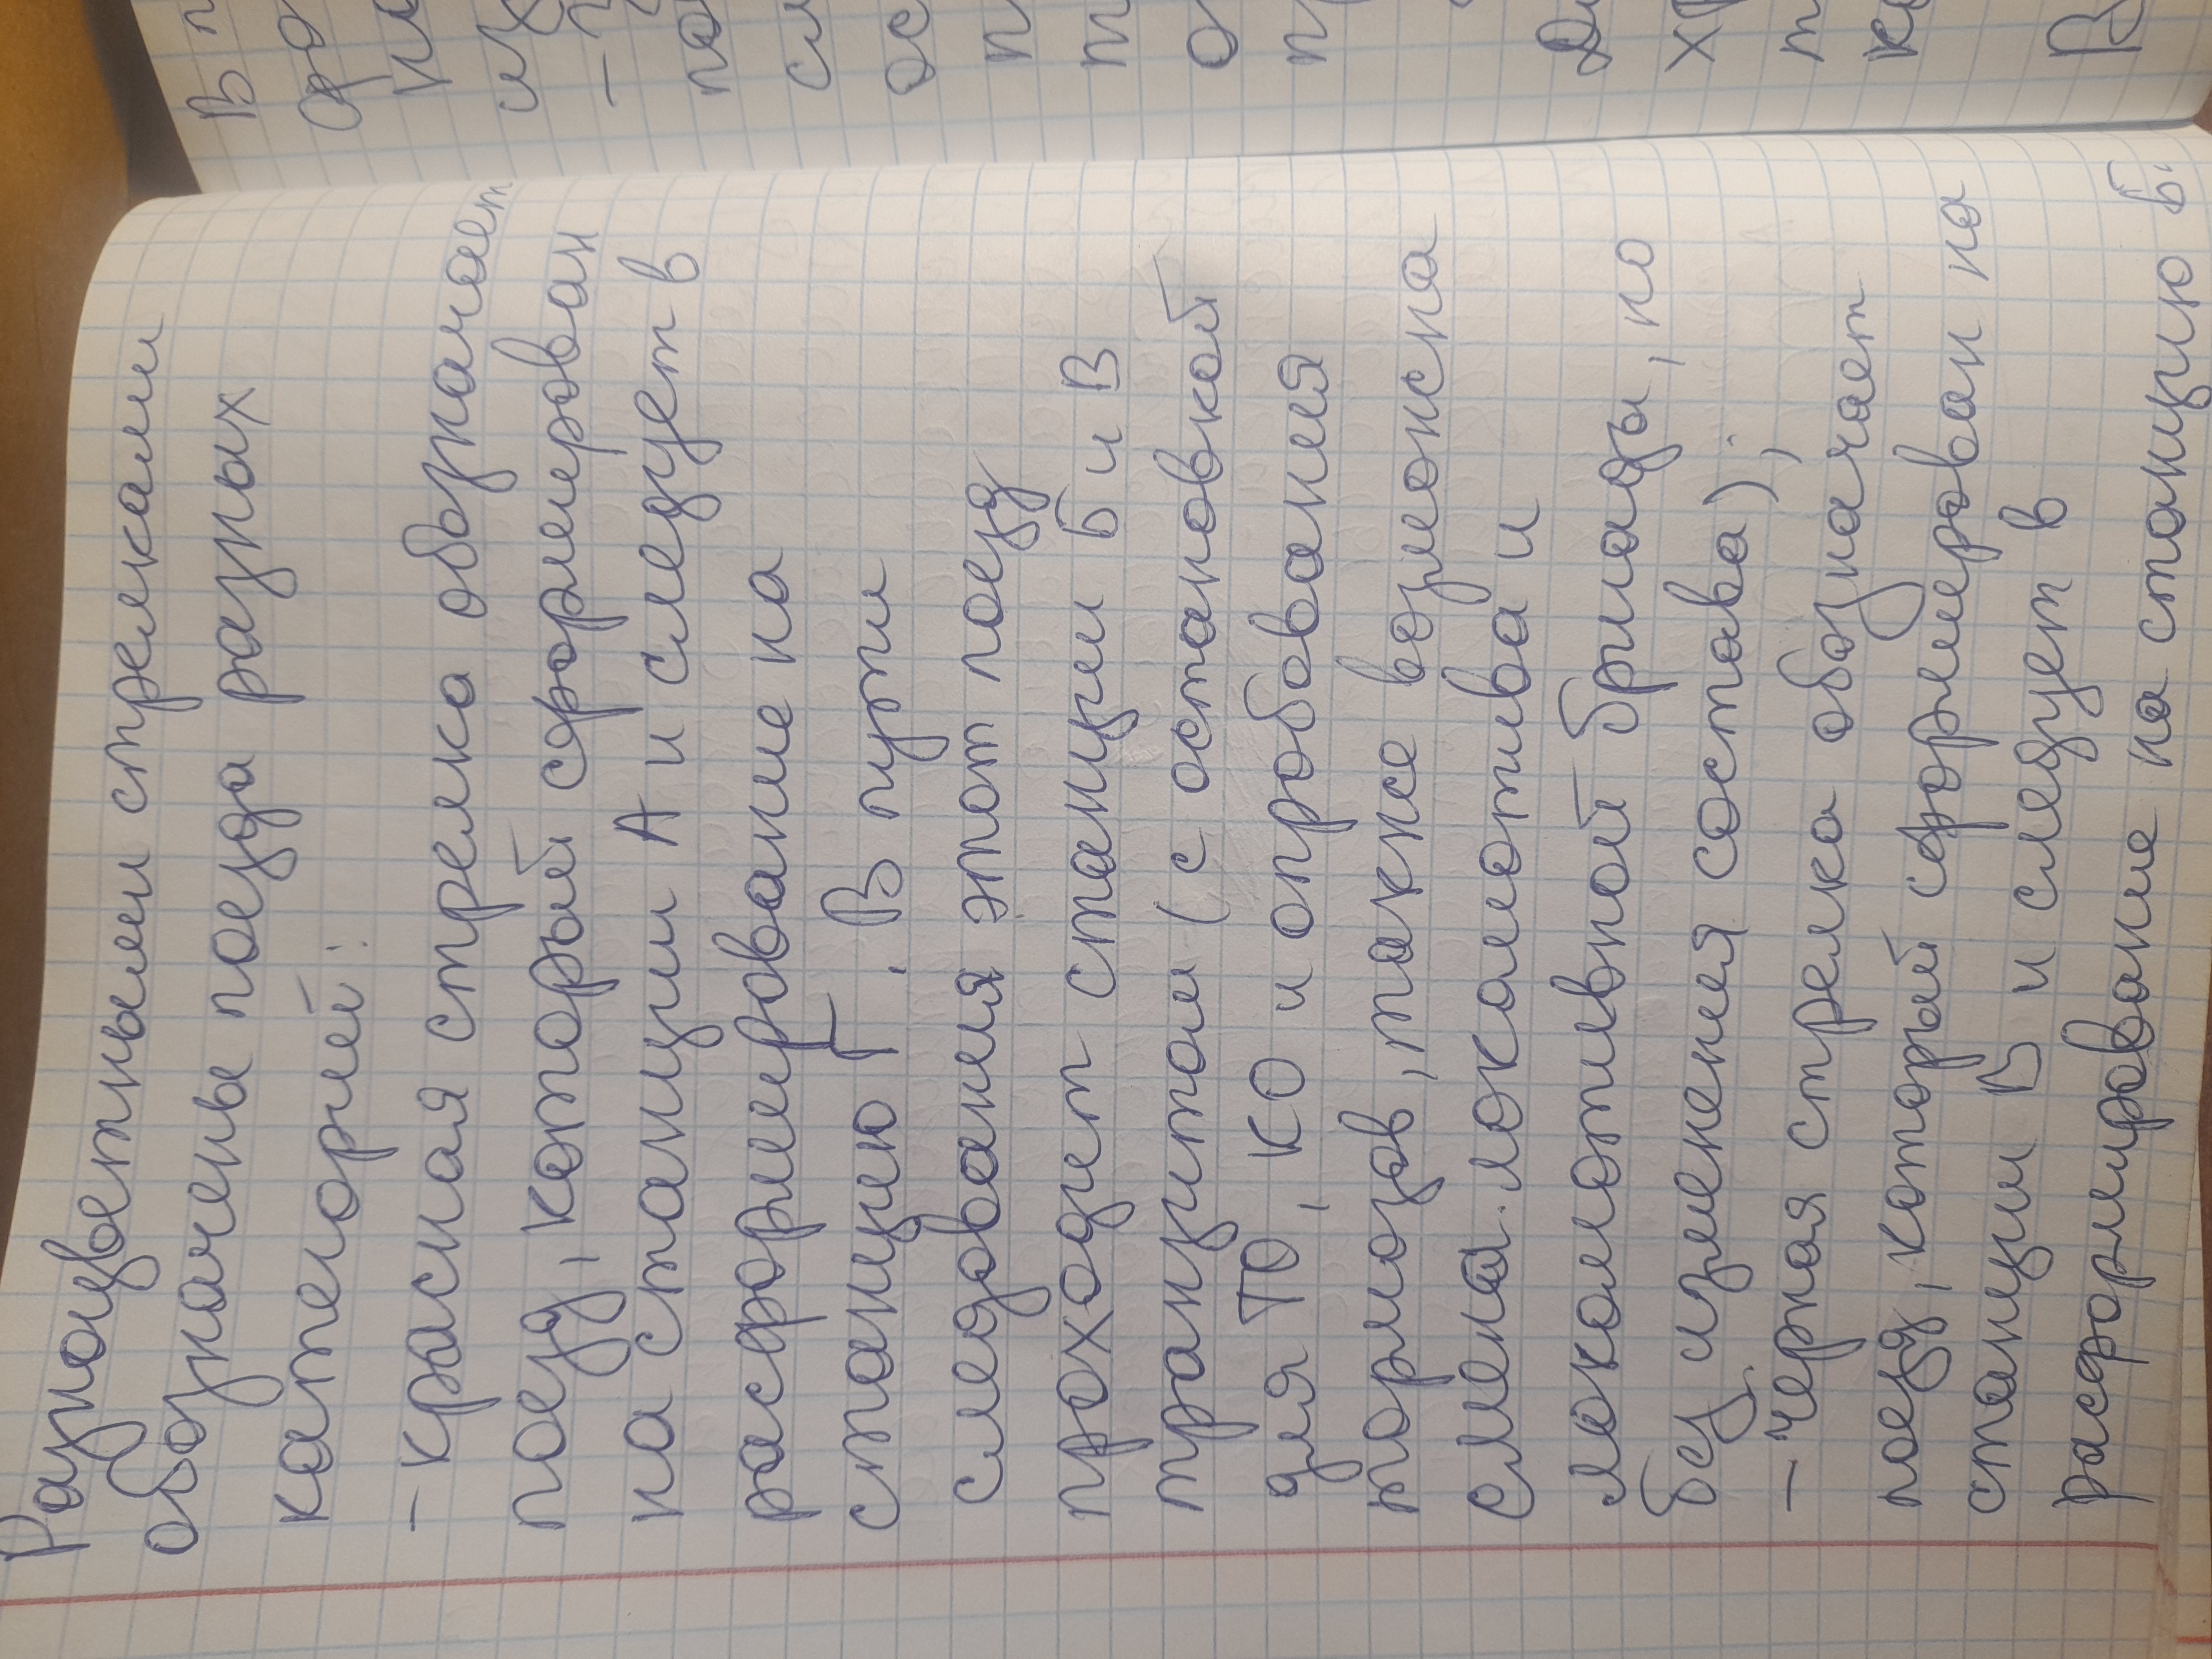 Разноцветными стрелками
обозначены поезда разных
категорий:
- красная стрелка обозначает
поезд, который сформирован
на станции А и следует в
расформирование на
станцию Г. В пути
следования этот поезд
проходит станции Б и В
транзитом (с остановкой
для ТО, КО и опробования
тормозов, также возможна
смена локомотива и
локомотивной бригады, но
без изменения состава);
- черная стрелка обозначает
поезд, который сформирован на
станции В и следует в
расформирование на станцию Б.